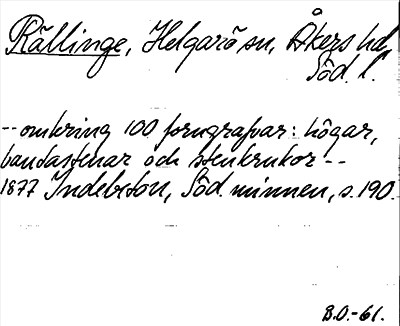 Rällinge, Helgarö sn, Åkers hd,
Söd. l.
-- omkring 100 forngrafvar: högar,
bautastenar och stenkrukor --
1877 Indebetou, Söd. minnen, s. 190.
B.O.-61.